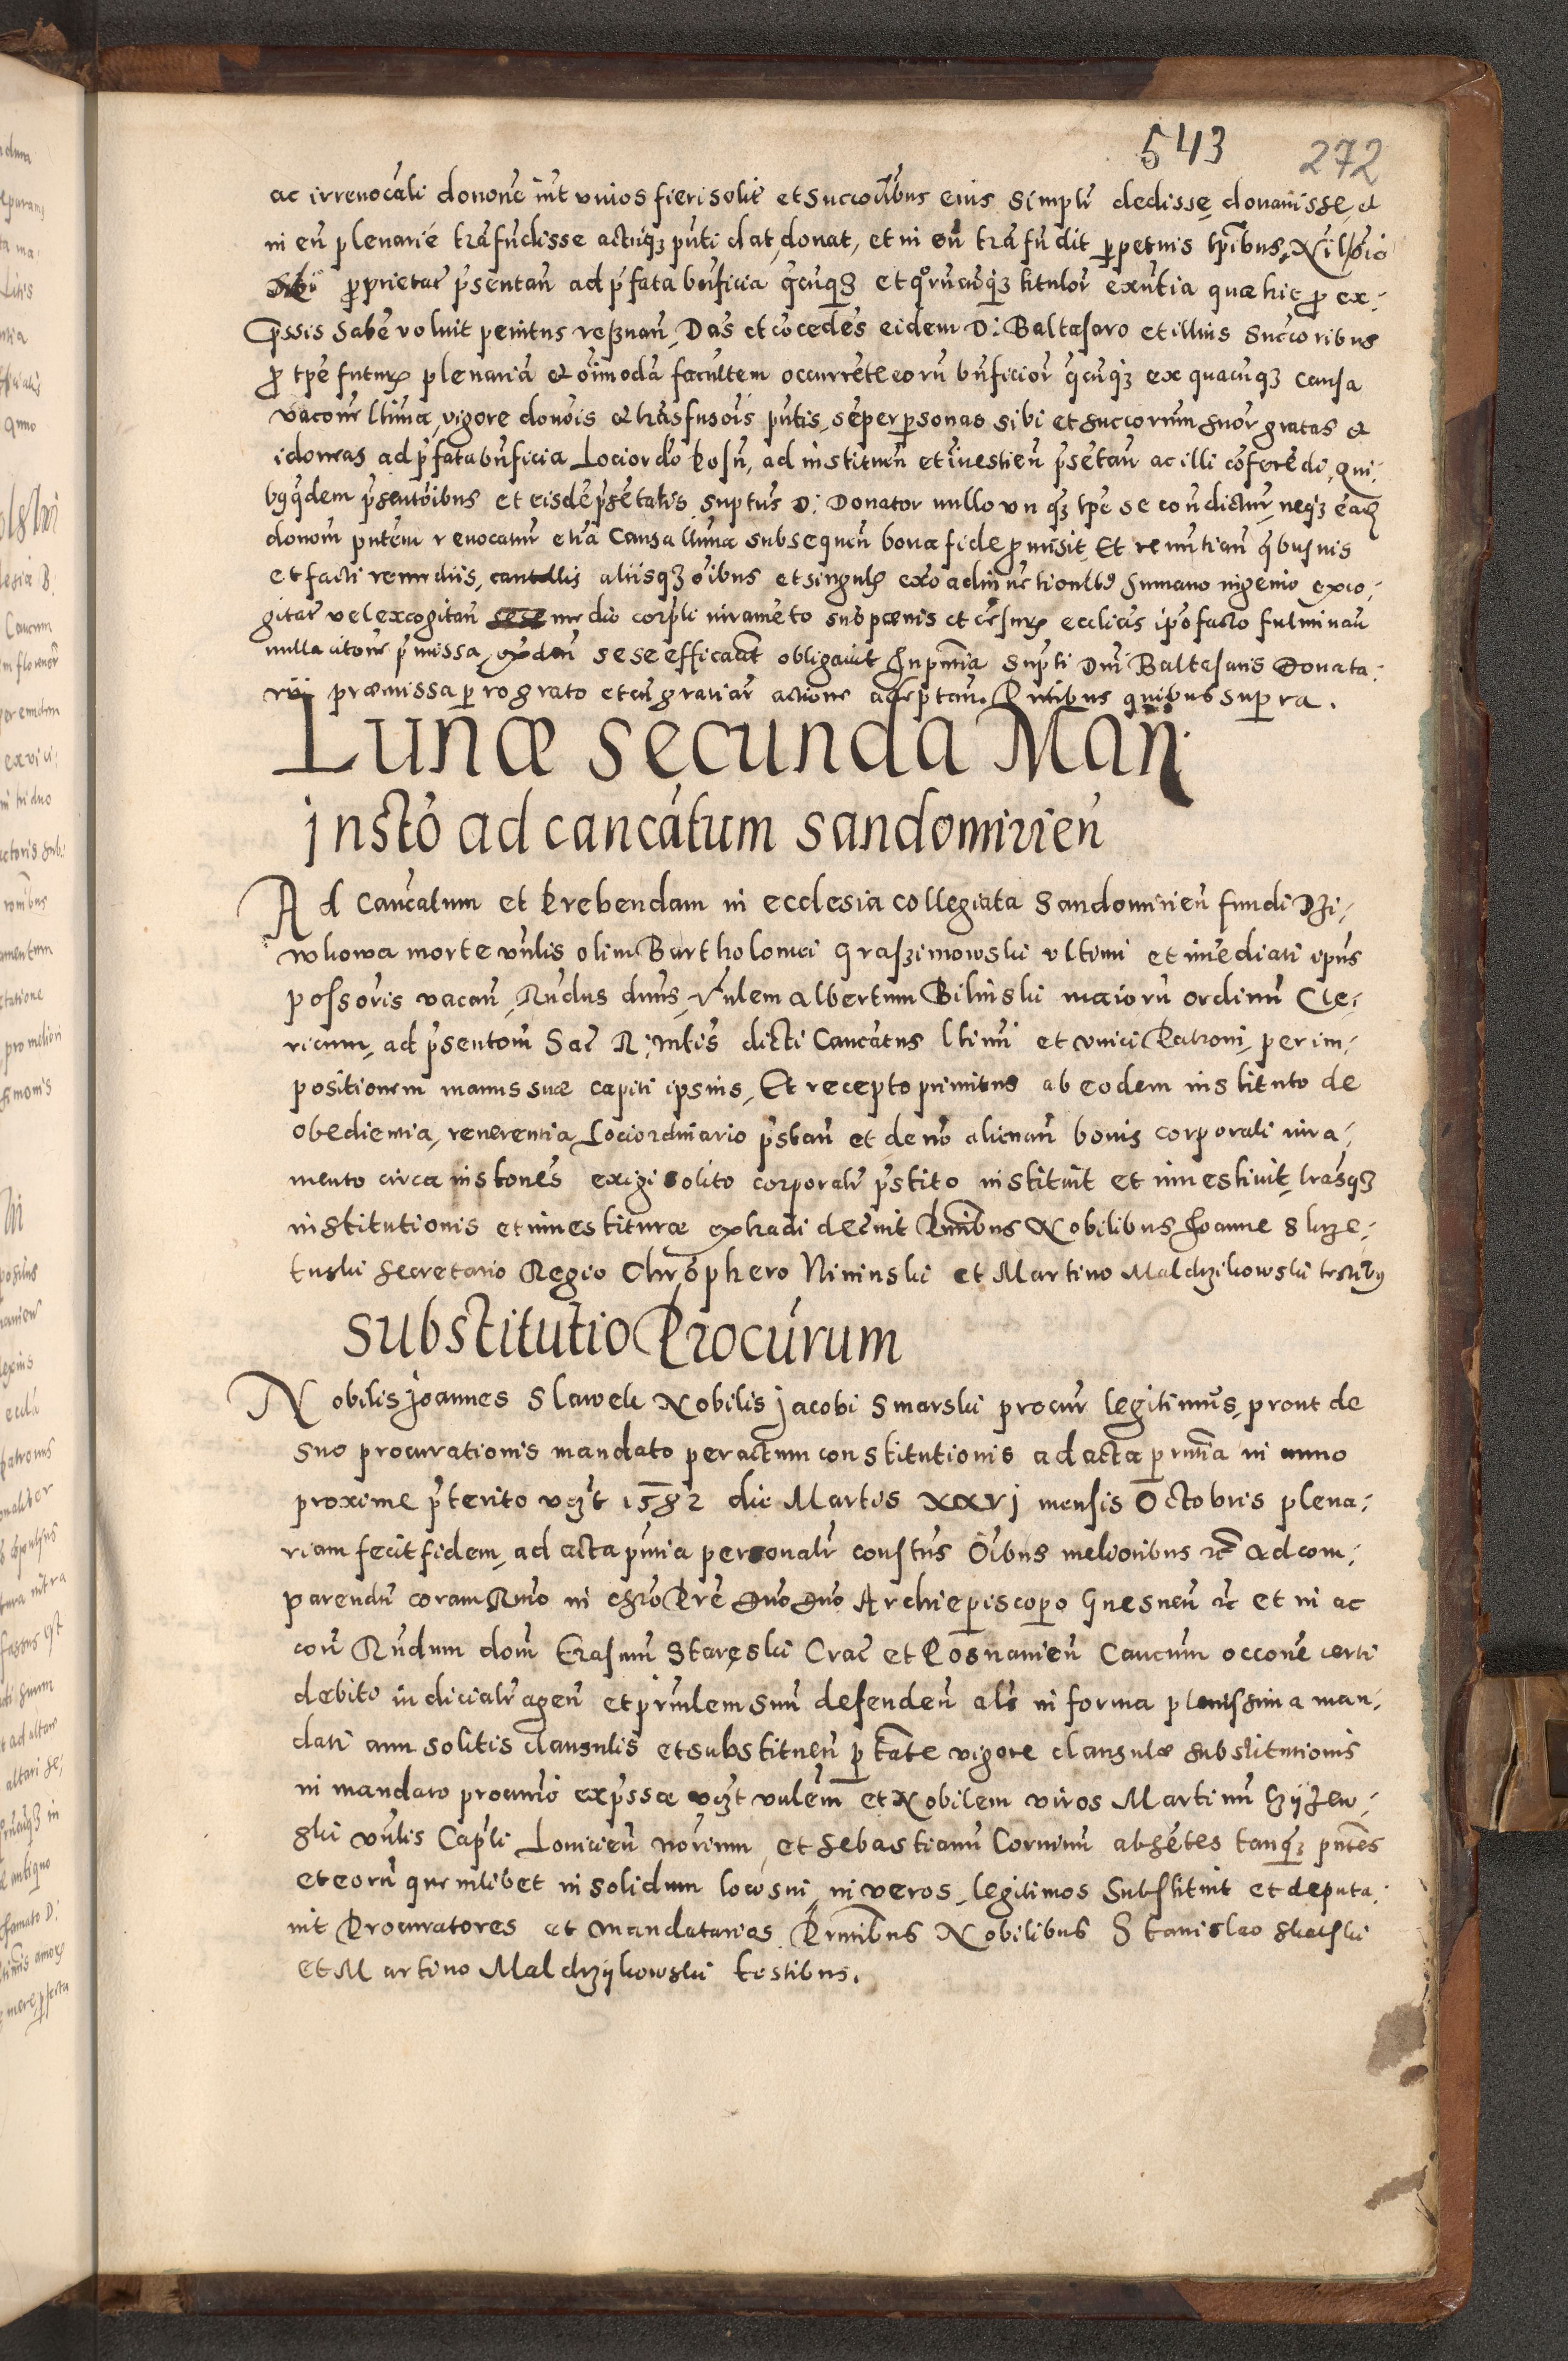 543 272
ac irrevocali donone int vivos fieri solit et Succoribus eius simplr dedisse, donavisse, et
in eu plenarie trafudisse actuqz pnti dat, donat, et in eu trafudit perpetuis tpribus, Nil
sibi proprietar psentan ad pfata bnficia et titulor exntia quae hic pro ex-
pssis habe voluit penitus reservan, Das et cocedes eidem D: Baltasaro et illius Succoribus
pro tpe futur plenaria et oimoda facultem occurrete eoru bnficior ex quacuqz causa
vacone ltima, vigore donois et trasfusois pntis, seper personas sibi et succorum suor gratas et
idoneas ad pfata bnficia Lociord, ad instituen et investien psetan ac illi coferedi, Qui-
psentoibus et eisde psetatis suptus D: Donator nullo un qz tpe se, neqz
donom pntem revocatur etia Causa ltima subsequen bona fide promisit, Et renuntian quibusvis
et facti remediis, cautellis aliisqz oibus et singulis humano ingenio exco-
gitat vel excogitan medio corpli iuramento sub poenis et cesuris ecclicis ipo facto fulminan
nulla citone pmissa, sese efficaciter obligavit In pntia supti Dni Baltasaris Donata-
rii praemissa pro grato et cu gratiar actione acceptan. Pntibus quibus supra.
Lunae secunda Maii
insto ad cancatum sandomirien
Ad Cancatum et Prebendam in ecclesia collegiata Sandomirien fundi Dzi-
wkowa morte vnlis olim Bartholomei Graszimowski ultimi et imediati ipius
possoris vacan, Rndus dnus, Vnlem Albertum Bilinski maioru ordinu Cle-
ricum, ad psentom Sac R: Mtis dicti Cancatus ltimi et unici Patroni, per im-
positionem manus suae capiti ipsius, Et recepto primitus ab eodem instituto de
obedientia, reverentia Lociordinario pstan et de no alienan bonis corporali iura-
mento circa instones exigi solito corporalr pstito instituit et investivit, lrasqz
institutionis et investiturae extradi decrevit Pntibus Nobilibus Joanne Sluze-
tuski Secretario Regio Chrophero Nininski et Martino Maldrzikowski testibus
Substitutio Procurum
Nobilis Joannes Slawek Nobilis Jacobi Smarski procur legitimus, prout de
suo procurationis mandato per actum constitutionis ad acta prntia in anno
proxime pterito vczt 1582 die Martis xxvj mensis Octobris plena-
riam fecit fidem, ad acta pntia personalr constus Oibus melioribus etc Ad com-
parendu coram Rmo in chro Pre dno dno Archiepiscopo Gnesnen etc et in ac
con Rndum dom Erasmu Stareski Crac et Posnanien Cancum occone certi
debito iudicialr agen et prinlem suu defenden als in forma plenissima man-
dati cum solitis clausulis et substituen ptate vigore clausulae substitutionis
in mandato procurio expssae vczt vnlem et Nobilem viros Martinu
ski vnlis Capli Lovicien norium, et Sebastianu Corvinu absetes tanqz pntes
et eoru quemlibet in solidum loco sui, in veros, legitimos Substituit et deputa-
vit Procuratores et mandatarios. Prntibus Nobilibus Stanislao Skarski
et Martino Maldrzijkowski testibus.